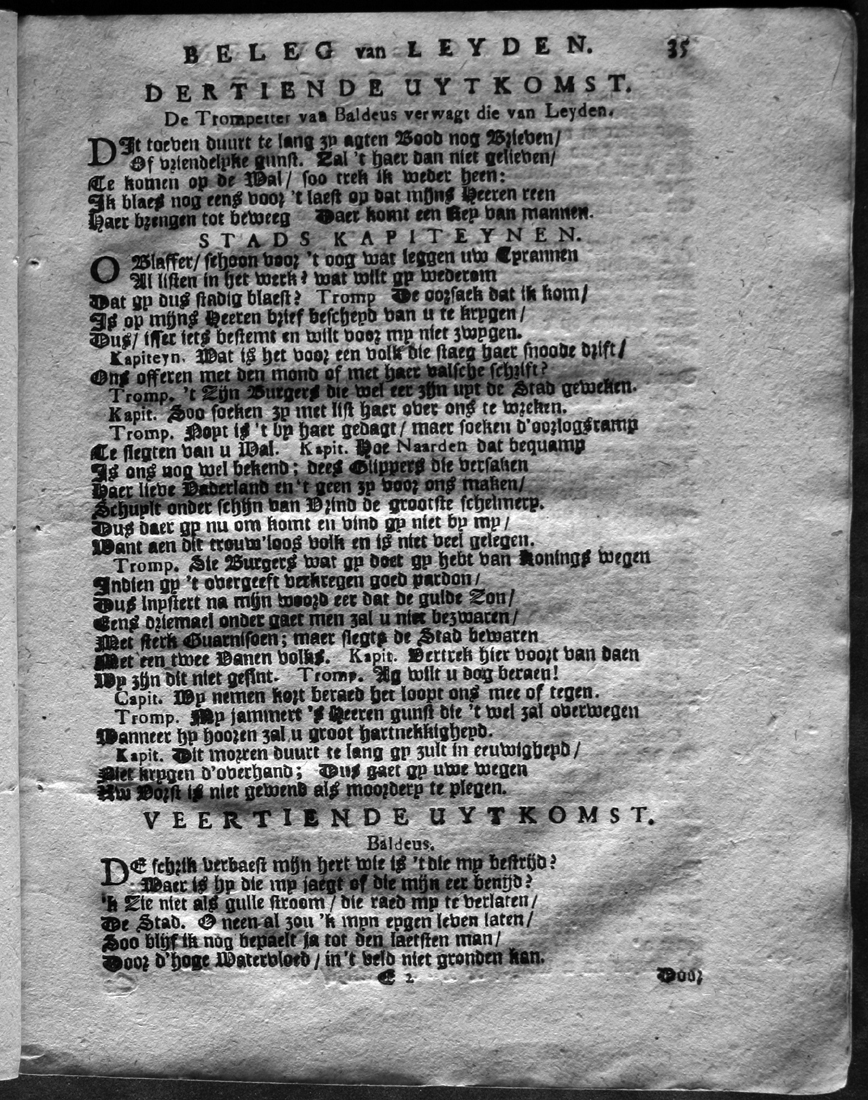 BELEG van LEYDEN. 35
DERTIENDE UYTKOMST.
De Trompetter van Baldeus verwagt die van Leyden.
DIt toeven duurt te lang zy agten Bood nog Brieven/
Of vriendelyke gunst. Zal 't haer dan niet gelieven/
Te komen op de Wal/ soo trek ik weder heen:
Ik blaes nog eens voor 't laest op dat mijns Heeren reen
Haer brengen tot beweeg Daer komt een Rep van mannen.
STADS KAPITEYNEN.
O Blaffer/ schoon voor 't oog wat leggen uw Tyrannen
Al listen in het werk? wat wilt gy wederom
Dat gy dus stadig blaest? Tromp De oorsaek dat ik kom/
Is op mijns Heeren brief bescheyd van u te krygen/
Dus/ isser iets bestemt en wilt voor my niet zwygen.
Kapiteyn. Wat is het voor een volk die staeg haer snoode drift/
Ons offeren met den mond of met haer valsche schrift?
Tromp. 't Zijn Burgers die wel eer zijn uyt de Stad geweken.
Kapit. Soo soeken zy met list haer over ons te wreken.
Tromp. Noyt is 't by haer gedagt/ maer soeken d'oorlogsramp
Te slegten van u Wal. Kapit. Hoe Naarden dat bequamp
Is ons nog wel bekend; dees Glippers die versaken
Haer lieve Vaderland en 't geen zy voor ons maken/
Schuylt onder schijn van Vrind de grootste schelmery.
Dus daer gy nu om komt en vind gy niet by my/
Want aen dit trouw'loos volk en is niet veel gelegen.
Tromp. Sie Burgers wat gy doet gy hebt van Konings wegen
Indien gy 't overgeeft verkregen goed pardon/
Dus luystert na mijn woord eer dat de gulde Zon/
Eens driemael onder gaet men zal u niet bezwaren/
Met sterk Guarnisoen; maer slegts de Stad bewaren
Met een twee Vanen volks. Kapit. Vertrek hier voort van daen
Wy zijn dit niet gesint. Tromp. Ag wilt u dog beraen!
Capit. Wy nemen kort beraed het loopt ons mee of tegen.
Tromp. My jammert 's Heeren gunst die 't wel zal overwegen
Wanneer hy hooren zal u groot hartnekkigheyd.
Kapit. Dit morren duurt te lang gy zult in eeuwigheyd/
Niet krygen d'overhand; Dus gaet gy uwe wegen
Uw Vorst is niet gewend als moordery te plegen.
VEERTIENDE UYTKOMST.
Baldeus.
DE schrik verbaest mijn hert wie is 't die my bestrijd?
Waer is hy die my jaegt of die mijn eer benijd?
'k Zie niet als gulle stroom/ die raed my te verlaten/
De Stad. O neen al zou 'k myn eygen leven laten/
Soo blijf ik nog bepaelt ja tot den laetsten man/
Door d'hoge Watervloed/ in 't veld niet gronden kan.
E 2 Door